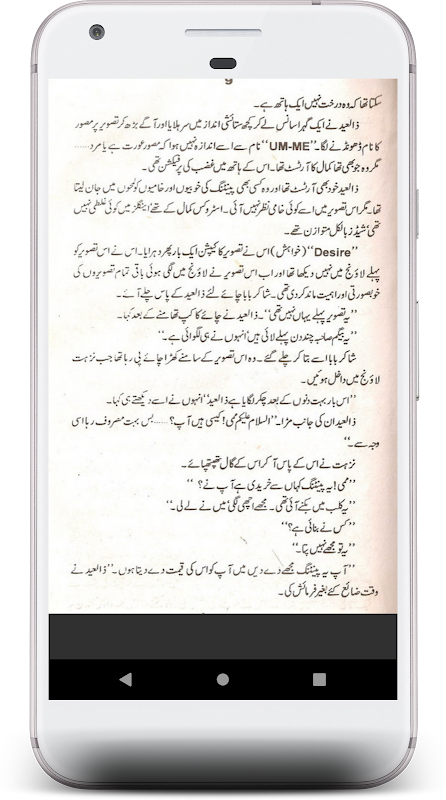 سکتا تھا کہ وہ درخت نہیں ایک ہاتھ ہے۔
ذالعید نے ایک گہرا سانس لے کر کچھ ستائشی انداز میں سر ہلایا اور آگے بڑھ کر تصویر پر مصور
کا نام ڈھونڈنے لگا۔ ”UM-ME“ نام سے اسے اندازہ نہیں ہوا کہ مصور عورت ہے یا مرد......
مگر وہ جو بھی تھا کمال کا آرٹسٹ تھا۔ اس کے ہاتھ میں غضب کی پرفیکشن تھی۔
ذالعید خود بھی آرٹسٹ تھا اور وہ کسی بھی پینٹنگ کی خوبیوں اور خامیوں کو لمحوں میں جان لیتا
تھا۔ مگر اس تصویر میں اسے کوئی خامی نظر نہیں آئی۔ اسٹروکس کمال کے تھے‘ اینگلز میں کوئی غلطی نہیں
تھی‘ شیڈز بالکل متوازن تھے۔
”Desire“ (خواہش) اس نے تصویر کا کیپشن ایک بار پھر دہرایا۔ اس نے اس تصویر کو
پہلے لاؤنج میں نہیں دیکھا تھا اور اب اس تصویر نے لاؤنج میں لگی ہوئی باقی تمام تصویروں کی
خوبصورتی اور اہمیت ماند کر دی تھی۔ شاکر بابا چائے لئے ذالعید کے پاس چلے آئے۔
”یہ تصویر پہلے یہاں نہیں تھی“۔ ذالعید نے چائے کا کپ تھامنے کے بعد کہا۔
”یہ بیگم صاحبہ چند دن پہلے لائی ہیں‘ انہوں نے ہی لگوائی ہے۔“
شاکر بابا اسے بتا کر چلے گئے۔ وہ اس تصویر کے سامنے کھڑا چائے پی رہا تھا جب نزہت
لاؤنج میں داخل ہوئیں۔
”اس بار بہت دنوں کے بعد چکر لگایا ہے ذالعید“ انہوں نے اسے دیکھتے ہی کہا۔
ذالعید ان کی جانب مڑا۔ ”السلام علیکم ممی! کیسی ہیں آپ؟ ...... بس بہت مصروف رہا اسی
وجہ سے۔“
نزہت نے اس کے پاس آ کر اس کے گال تھپتھپائے۔
”ممی! یہ پینٹنگ کہاں سے خریدی ہے آپ نے؟“
”یہ کلب میں بکنے آئی تھی۔ مجھے اچھی لگی‘ میں نے لے لی۔“
”کس نے بنائی ہے؟“
”یہ تو مجھے نہیں پتا۔“
”آپ یہ پینٹنگ مجھے دے دیں میں آپ کو اس کی قیمت دے دیتا ہوں۔“ ذالعید نے
وقت ضائع کئے بغیر فرمائش کی۔